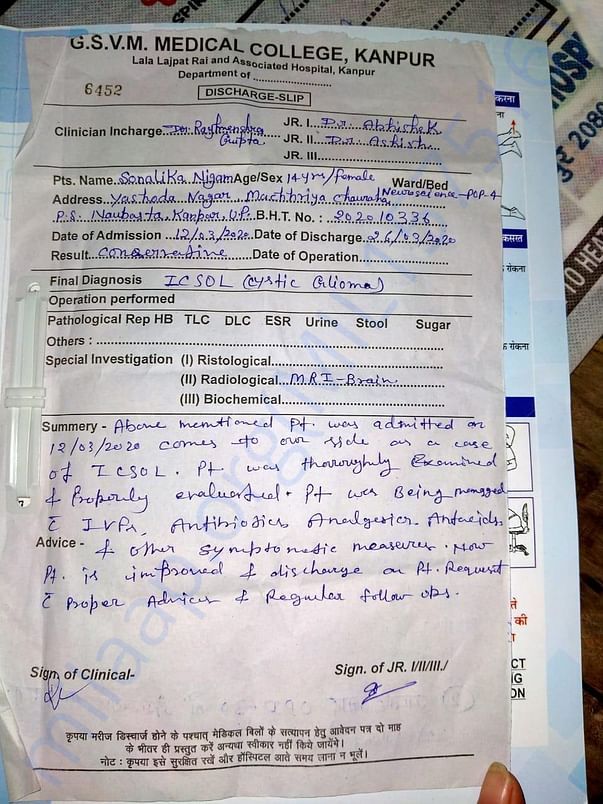 G.S.V.M. MEDICAL COLLEGE, KANPUR
Lala Lajpat Rai and Associated Hospital, Kanpur
Department of
6452
DISCHARGE-SLIP
Clinician Incharge Dr. Raghvendra Gupta JR. I Dr. Abhishek
JR. II Dr. Ashish
JR. III
Pts. Name Sonalika Nigam Age/Sex 14 yrs/female Ward/Bed
Neuroscience-POP-4
Address Yashoda Nagar Machhriya chauraha
P.S. Naubasta, Kanpur, UP. B.H.T. No. : 202010336
Date of Admission 12/03/2020 Date of Discharge 26/03/2020
Result conservative Date of Operation
Final Diagnosis ICSOL (cystic Glioma)
Operation performed
Pathological Rep HB TLC DLC ESR Urine Stool Sugar
Others :
Special Investigation (I) Ristological
(II) Radiological MRI-Brain
(III) Biochemical
Summery - Above mentioned Pt. was admitted on
12/03/2020 comes to our side as a case
of ICSOL. Pt. was thoroughly Examined
& Properly evaluated. Pt was Being managed
c̄ IVFs, Antibiotics Analgesics. Antacids
Advice - & other symptomatic measures. Now
Pt. is improved & discharge on Pt. Request
c̄ proper Advices & Regular follow ups.
Sign. of Clinical- Sign. of JR. I/II/III./
कृपया मरीज डिस्चार्ज होने के पश्चात् मेडिकल बिलों के सत्यापन हेतु आवेदन पत्र दो माह
के भीतर ही प्रस्तुत करें अन्यथा स्वीकार नहीं किये जायेंगे।
नोट : कृपया इसे सुरक्षित रखें और हॉस्पिटल आते समय लाना न भूलें।